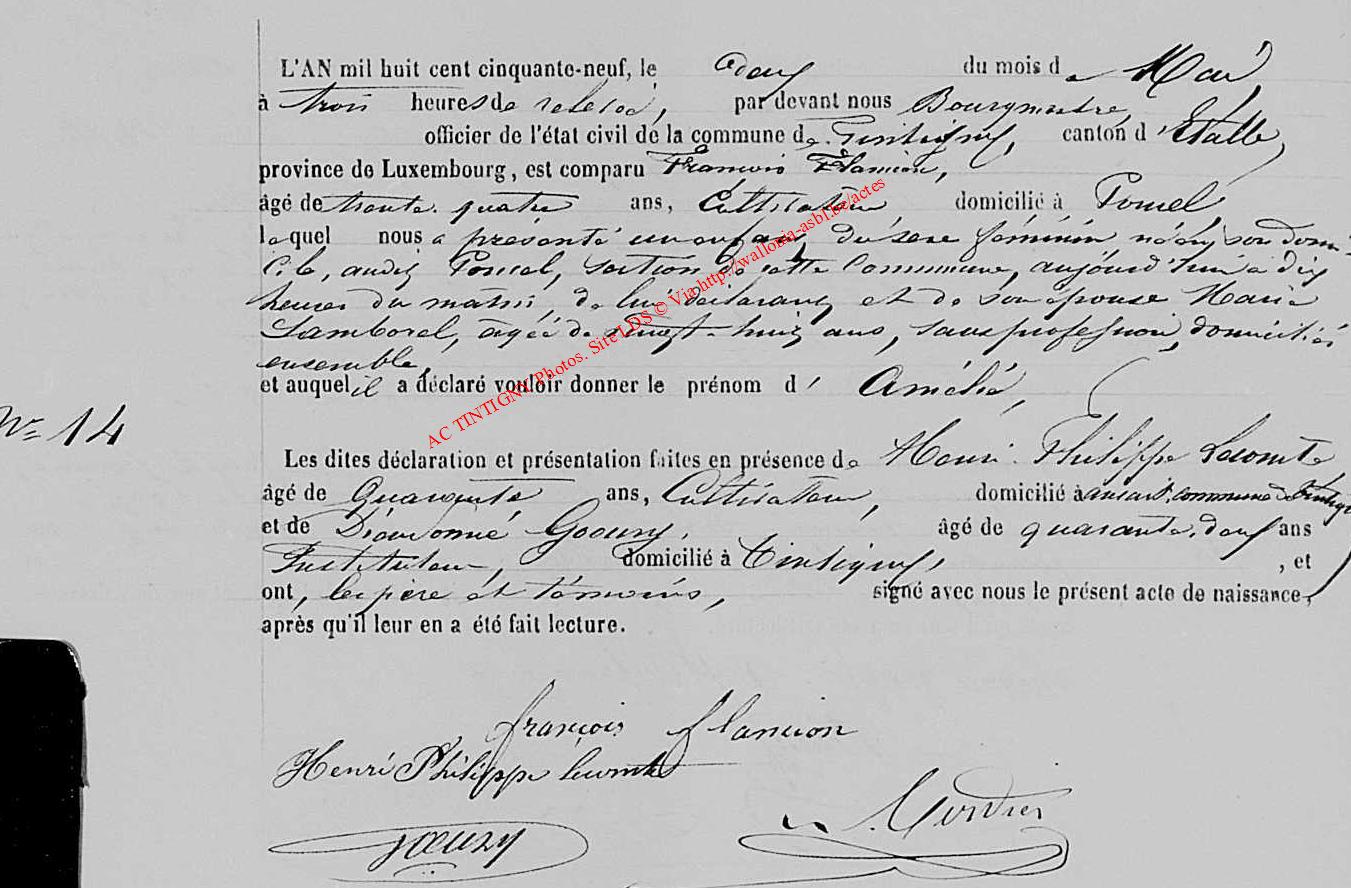 L'AN mil huit cent cinquante-neuf, le deux du mois de Mai
à trois heures de relevée, par devant nous Bourgmestre,
officier de l'état civil de la commune de Tintigny, canton d'Etalle,
province de Luxembourg, est comparu François Flamion,
âgé de trente-quatre ans, Cultivateur domicilié à Poncel,
lequel nous a présenté un enfant du sexe féminin, né en son domi-
cile, audit Poncel, section de cette commune, aujourd'hui à dix
heures du matin, de lui déclarant et de son épouse Marie
Lamborel, âgée de vingt-huit ans, sans profession, domiciliés
ensemble,
et auquel il a déclaré vouloir donner le prénom d'Amélie,
N° 14
Les dites déclaration et présentation faites en présence de Henri Philippe Lecomte,
âgé de Quarante ans, Cultivateur, domicilié à ansart, commune de Tintigny
et de Dieudonné Goeury, âgé de quarante-deux ans
Instituteur, domicilié à Tintigny, , et
ont, les père et témoins, signé avec nous le présent acte de naissance,
après qu'il leur en a été fait lecture.
françois flamion
Henri Philippe lecomte
goeury
AC TINTIGNY Photos. Site LDS © Via http://wallonia-asbl.be/actes